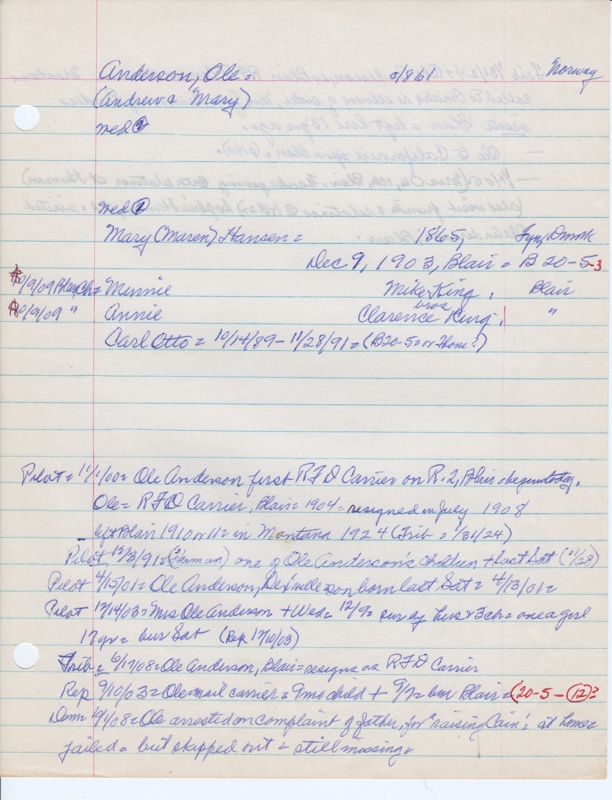 Anderson, Ole = 1861 Norway
(Andrew & Mary)
med ②
med ①
Mary (Maren) Hansen = 1865, Fyn, Dmrk
Dec 9, 1903, Blair = B 20-5-3
10/9/09 Blair Ch = Minnie Mike King, Blair
bros
10/9/09 " Annie Clarence King, "
Carl Otto = 10/14/89 - 11/28/91 = (B20-5 = no stone?)
Pilot = 11/1/00 = Ole Anderson first RFD Carrier on R.2, Blair = began today.
Ole = RFD Carrier, Blair = 1904 = resigned in July 1908
left Blair 1910 or 11 = in Montana 1924 (Trib = 1/31/24)
Pilot 12/3/91 = (Herman) one of Ole Anderson's children + last Sat (11/28)
Pilot 4/15/01 = Ole Anderson, son born last Sat = 4/13/01 =
Pilot 12/14/03 = Mrs Ole Anderson + Wed = 12/9 = surv by hus & 3 ch = one a girl
17 yr = bur Sat (Rep 12/10/03)
Trib = 6/17/08 = Ole Anderson, Blair = resigns as RFD Carrier
Rep 9/10/03 = Ole = mail carrier = 9 mo child + 9/7 = bur Blair = (20-5-⑫?
Dem = 10/1/08 = Ole arrested on complaint of father, for "raising Cain" = at home =
jailed = but skipped out = still missing.